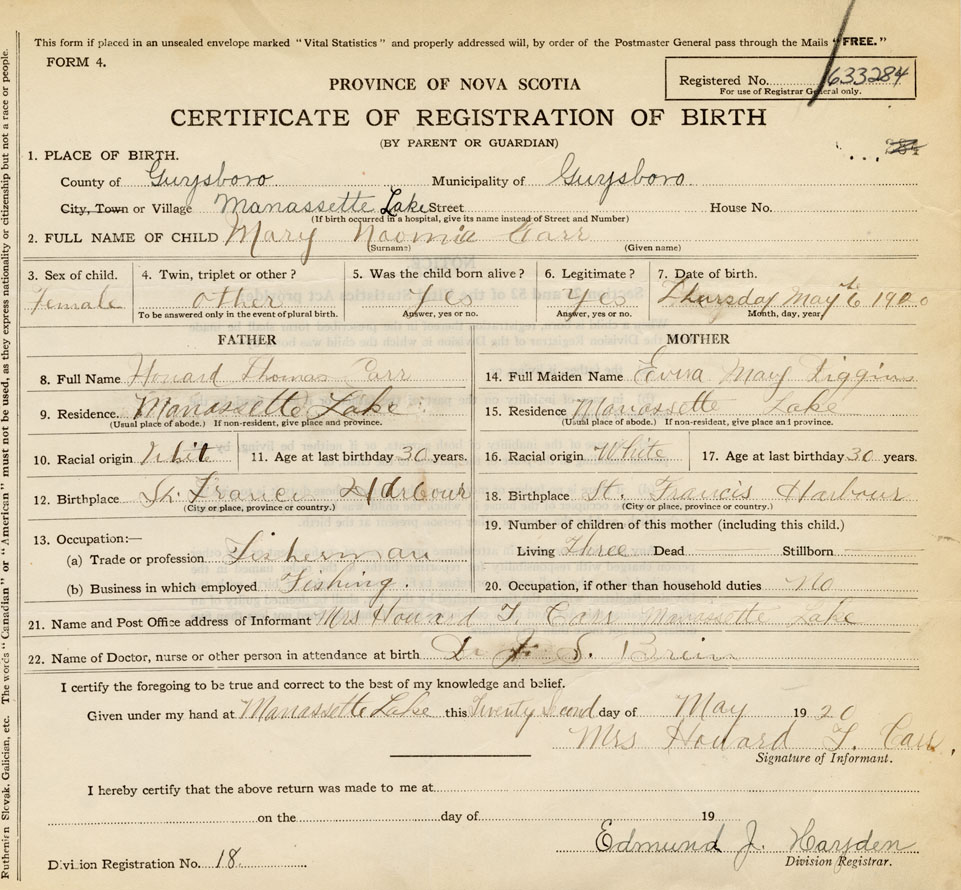 This form if placed in an unsealed envelope marked "Vital Statistics" and properly addressed will, by order of the Postmaster General pass through the Mails "FREE."
FORM 4.
Registered No. 633284
For use of Registrar General only.
PROVINCE OF NOVA SCOTIA
CERTIFICATE OF REGISTRATION OF BIRTH
(BY PARENT OR GUARDIAN)
1. PLACE OF BIRTH.
County of Guysboro Municipality of Guysboro
City, Town or Village Manassette Lake Street House No.
(If birth occurred in a hospital, give its name instead of Street and Number)
2. FULL NAME OF CHILD Mary Naomia Carr
(Surname) (Given name)
3. Sex of child. 4. Twin, triplet or other? 5. Was the child born alive? 6. Legitimate? 7. Date of birth.
Female other Yes Yes Thursday May 6th 1920
To be answered only in the event of plural birth. Answer, yes or no. Answer, yes or no. Month, day, year
FATHER MOTHER
8. Full Name Howard Thomas Carr
14. Full Maiden Name May Diggins
9. Residence. Manassette Lake
(Usual place of abode.) If non-resident, give place and province.
15. Residence Manassette Lake
(Usual place of abode.) If non-resident, give place and province.
10. Racial origin White 11. Age at last birthday 30 years.
16. Racial origin White 17. Age at last birthday 30 years.
12. Birthplace St. Francis Harbour
(City or place, province or country.)
18. Birthplace St. Francis Harbour
(City or place, province or country.)
13. Occupation:—
(a) Trade or profession Fisherman
(b) Business in which employed Fishing.
19. Number of children of this mother (including this child.)
Living Three Dead Stillborn
20. Occupation, if other than household duties No
21. Name and Post Office address of Informant Mrs Howard T. Carr Manassette Lake
22. Name of Doctor, nurse or other person in attendance at birth Dr S.
I certify the foregoing to be true and correct to the best of my knowledge and belief.
Given under my hand at Manassette Lake this Twenty Second day of May 1920
Mrs Howard T. Carr.
Signature of Informant.
I hereby certify that the above return was made to me at
on the day of 19
Edmund J. Harsden
Division Registrar.
Division Registration No. 18
Ruthenian Slovak, Galician, etc. The words "Canadian" or "American" must not be used, as they express nationality or citizenship but not a race or people.